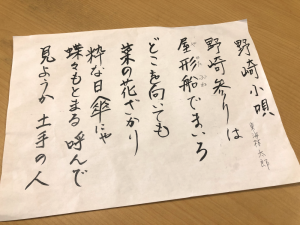 野崎小唄
東海林太郎
野崎参りは
屋形船でまいろ
どこを向いても
菜の花ざかり
粋な日傘にゃ
蝶々もとまる 呼んで
見ようか 土手の人